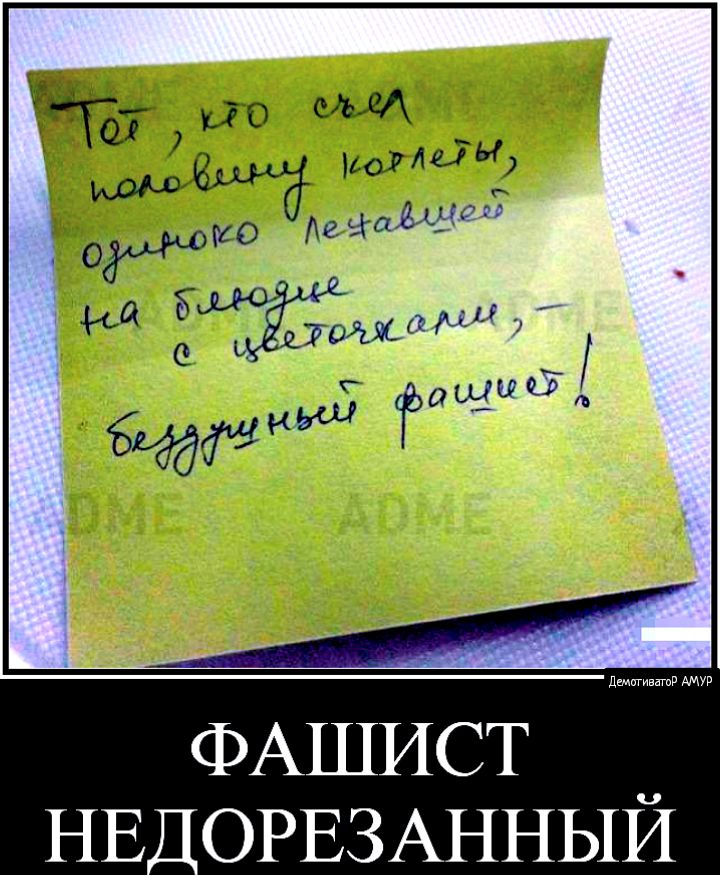 Тот, кто съел
половину котлеты,
одиноко лежавшей
на блюдце
с цветочками, –
бездушный фашист!
ADME
ADME
ADME
ADME
ADME
ДемотиватоР АМУР
ФАШИСТ
НЕДОРЕЗАННЫЙ